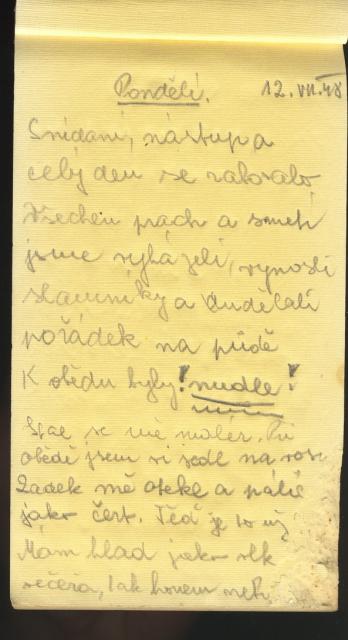 Pondělí. 12. VII. 48
Snídaní, nástup a
celý den se
Všechen prach a smetí
jsme vyházeli, vynosili
slamníky a udělali
pořádek na půdě
K obědu byly ! nudle !
Stal se mě malér. Při
obědě jsem si sedl na vosu
Zadek mě otekl a pálil
jako čert. Teď je to už
Mám hlad jako vlk
večeřa, tak honem